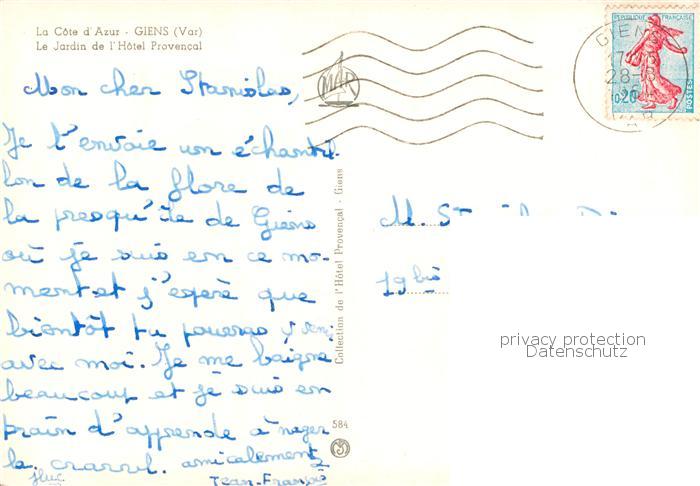 La Côte d'Azur - GIENS (Var)
Le Jardin de l'Hôtel Provençal
Mon cher Stanislas,
Je t'envoie un échantil-
lon de la flore de
la presqu'île de Giens
où je suis en ce mo-
ment et j'espère que
bientôt tu pourras y venir
avec moi. Je me baigne
beaucoup et je suis en
train d'apprendre à nager
le crawl. amicalement
Jean-François
Collection de l'Hôtel Provençal - Giens
584
MAR
REPUBLIQUE FRANÇAISE
0,20
POSTES
GIENS
28-8
VAR
M. St
19 bis
privacy protection
Datenschutz